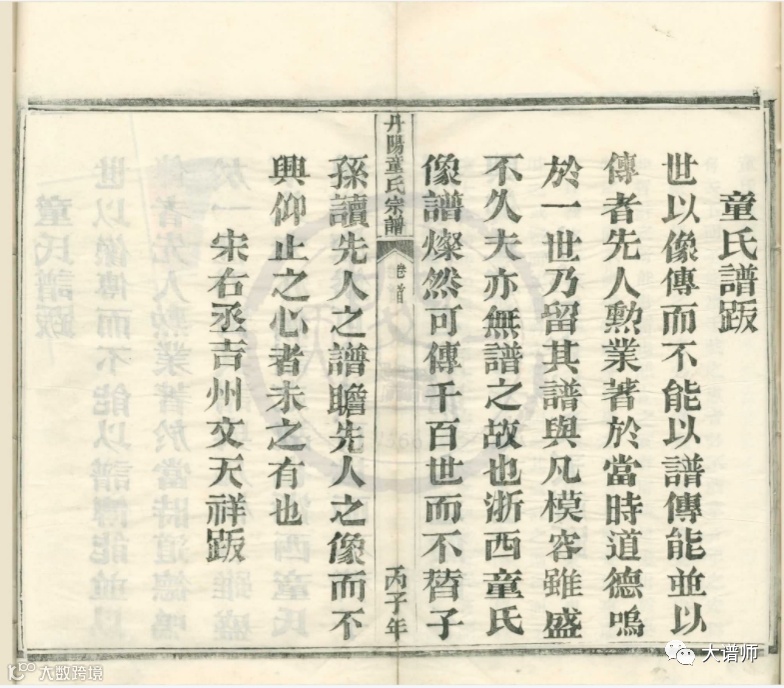 童氏譜跋
世以像傳而不能以譜傳能並以
傳者先人勳業著於當時道德鳴
於一世乃留其譜與凡模容雖盛
不久夫亦無譜之故也浙西童氏
像譜燦然可傳千百世而不替子
丹陽童氏宗譜
卷首
丙子年
孫讀先人之譜瞻先人之像而不
興仰止之心者未之有也
宋右丞吉州文天祥跋
大数跨境
大谱师